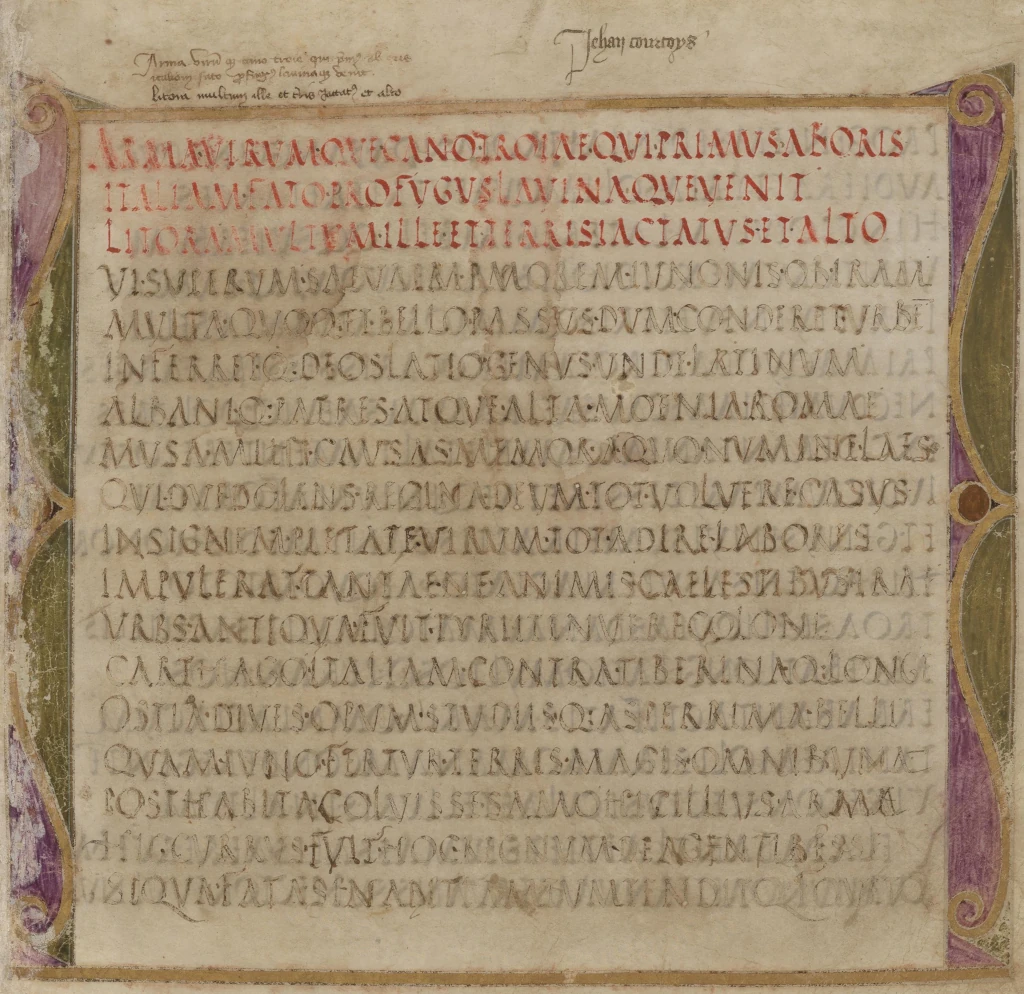 Jehan courtoys
Arma virūq cano troie qui prim9 ab oris
italiam fato profug9 lauinaq venit
litora multum ille et tris iactat9 et alto
ARMA·VIRUM·QVE·CANO·TROIAE·QUI·PRIMUS·AB·ORIS
ITALIAM·FATO·PROFUGUS·LAVINAQVE·VENIT
LITORA·MULTUM·ILLE·ET·TERRIS·IACTATUS·ET·ALTO
VI·SUPERUM·SAEVAE·MEMOREM·IUNONIS·OB·IRAM
MULTA·QUOQ·ET·BELLO·PASSUS·DUM·CONDERET·URBĒ
INFERRETQ·DEOS LATIO GENUS·UNDE·LATINUM
ALBANIQ·PATRES·ATQVE·ALTA·MOENIA·ROMAE
MUSA·MIHI·CAUSAS·MEMORA·QUO NUMINE·LAESO
QUIDVE DOLENS·REGINA DEUM·TOT·VOLVERE CASUS
INSIGNEM·PIETATE·VIRUM·TOT·ADIRE·LABORES
IMPULERAT·TANTAENE ANIMIS CAELESTIBUS·IRAE
URBS·ANTIQUA·FUIT·TYRII·TENUERE COLONI
CARTHAGO·ITALIAM·CONTRA·TIBERINAQ·LONGE
OSTIA·DIVES·OPUM·STUDIISQ·ASPERRIMA·BELLI
QUAM·IUNO·FERTUR·TERRIS·MAGIS·OMNIBUS UNAM
POSTHABITA·COLUISSE·SAMO·HIC ILLIUS·ARMA
HIC·CURRUS·FUIT·HOC REGNUM DEA GENTIB ESSE
SI QUA FATA SINANT IAM TUM